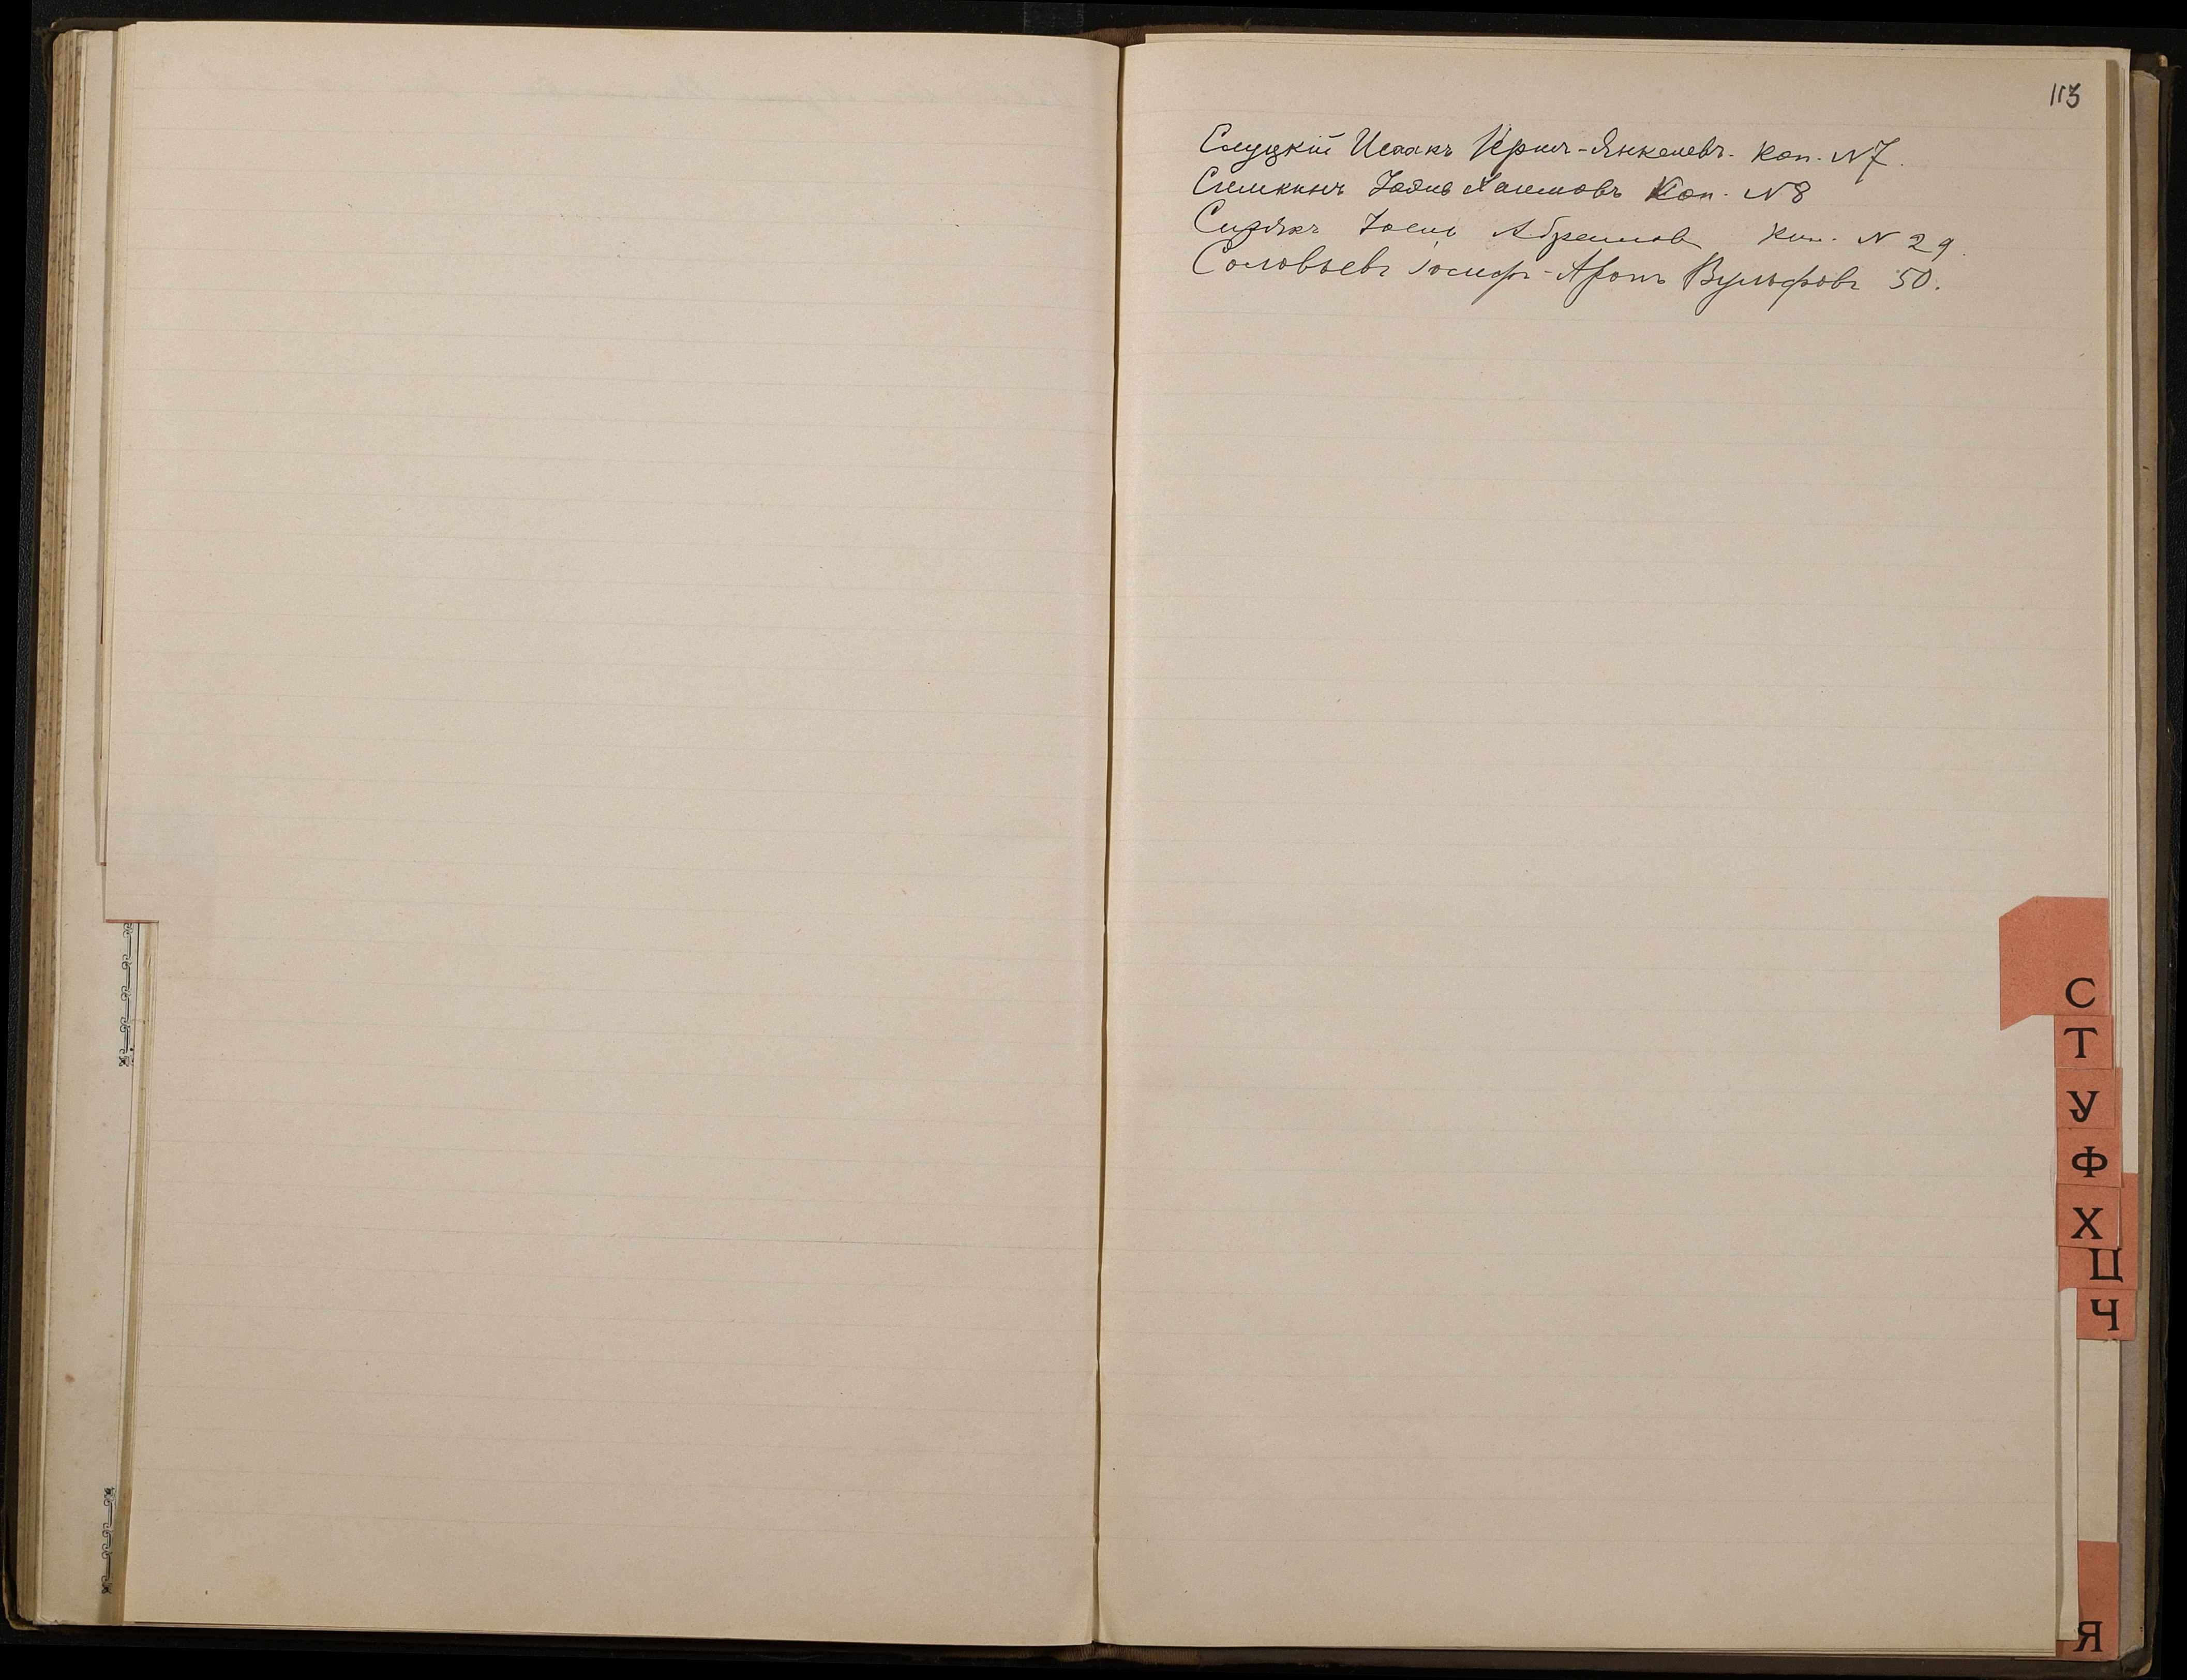 113
Слуцкій Исаакъ Иршъ-Янкелевъ. Коп. N7.
Слемкинъ Хаимовъ Коп. N8
Сиракъ Іосель Абрамовъ Коп. N 29.
Соловьевъ Іосифъ-Аронъ Вульфовъ 50.
С
Т
У
Ф
Х
Ц
Ч
Я